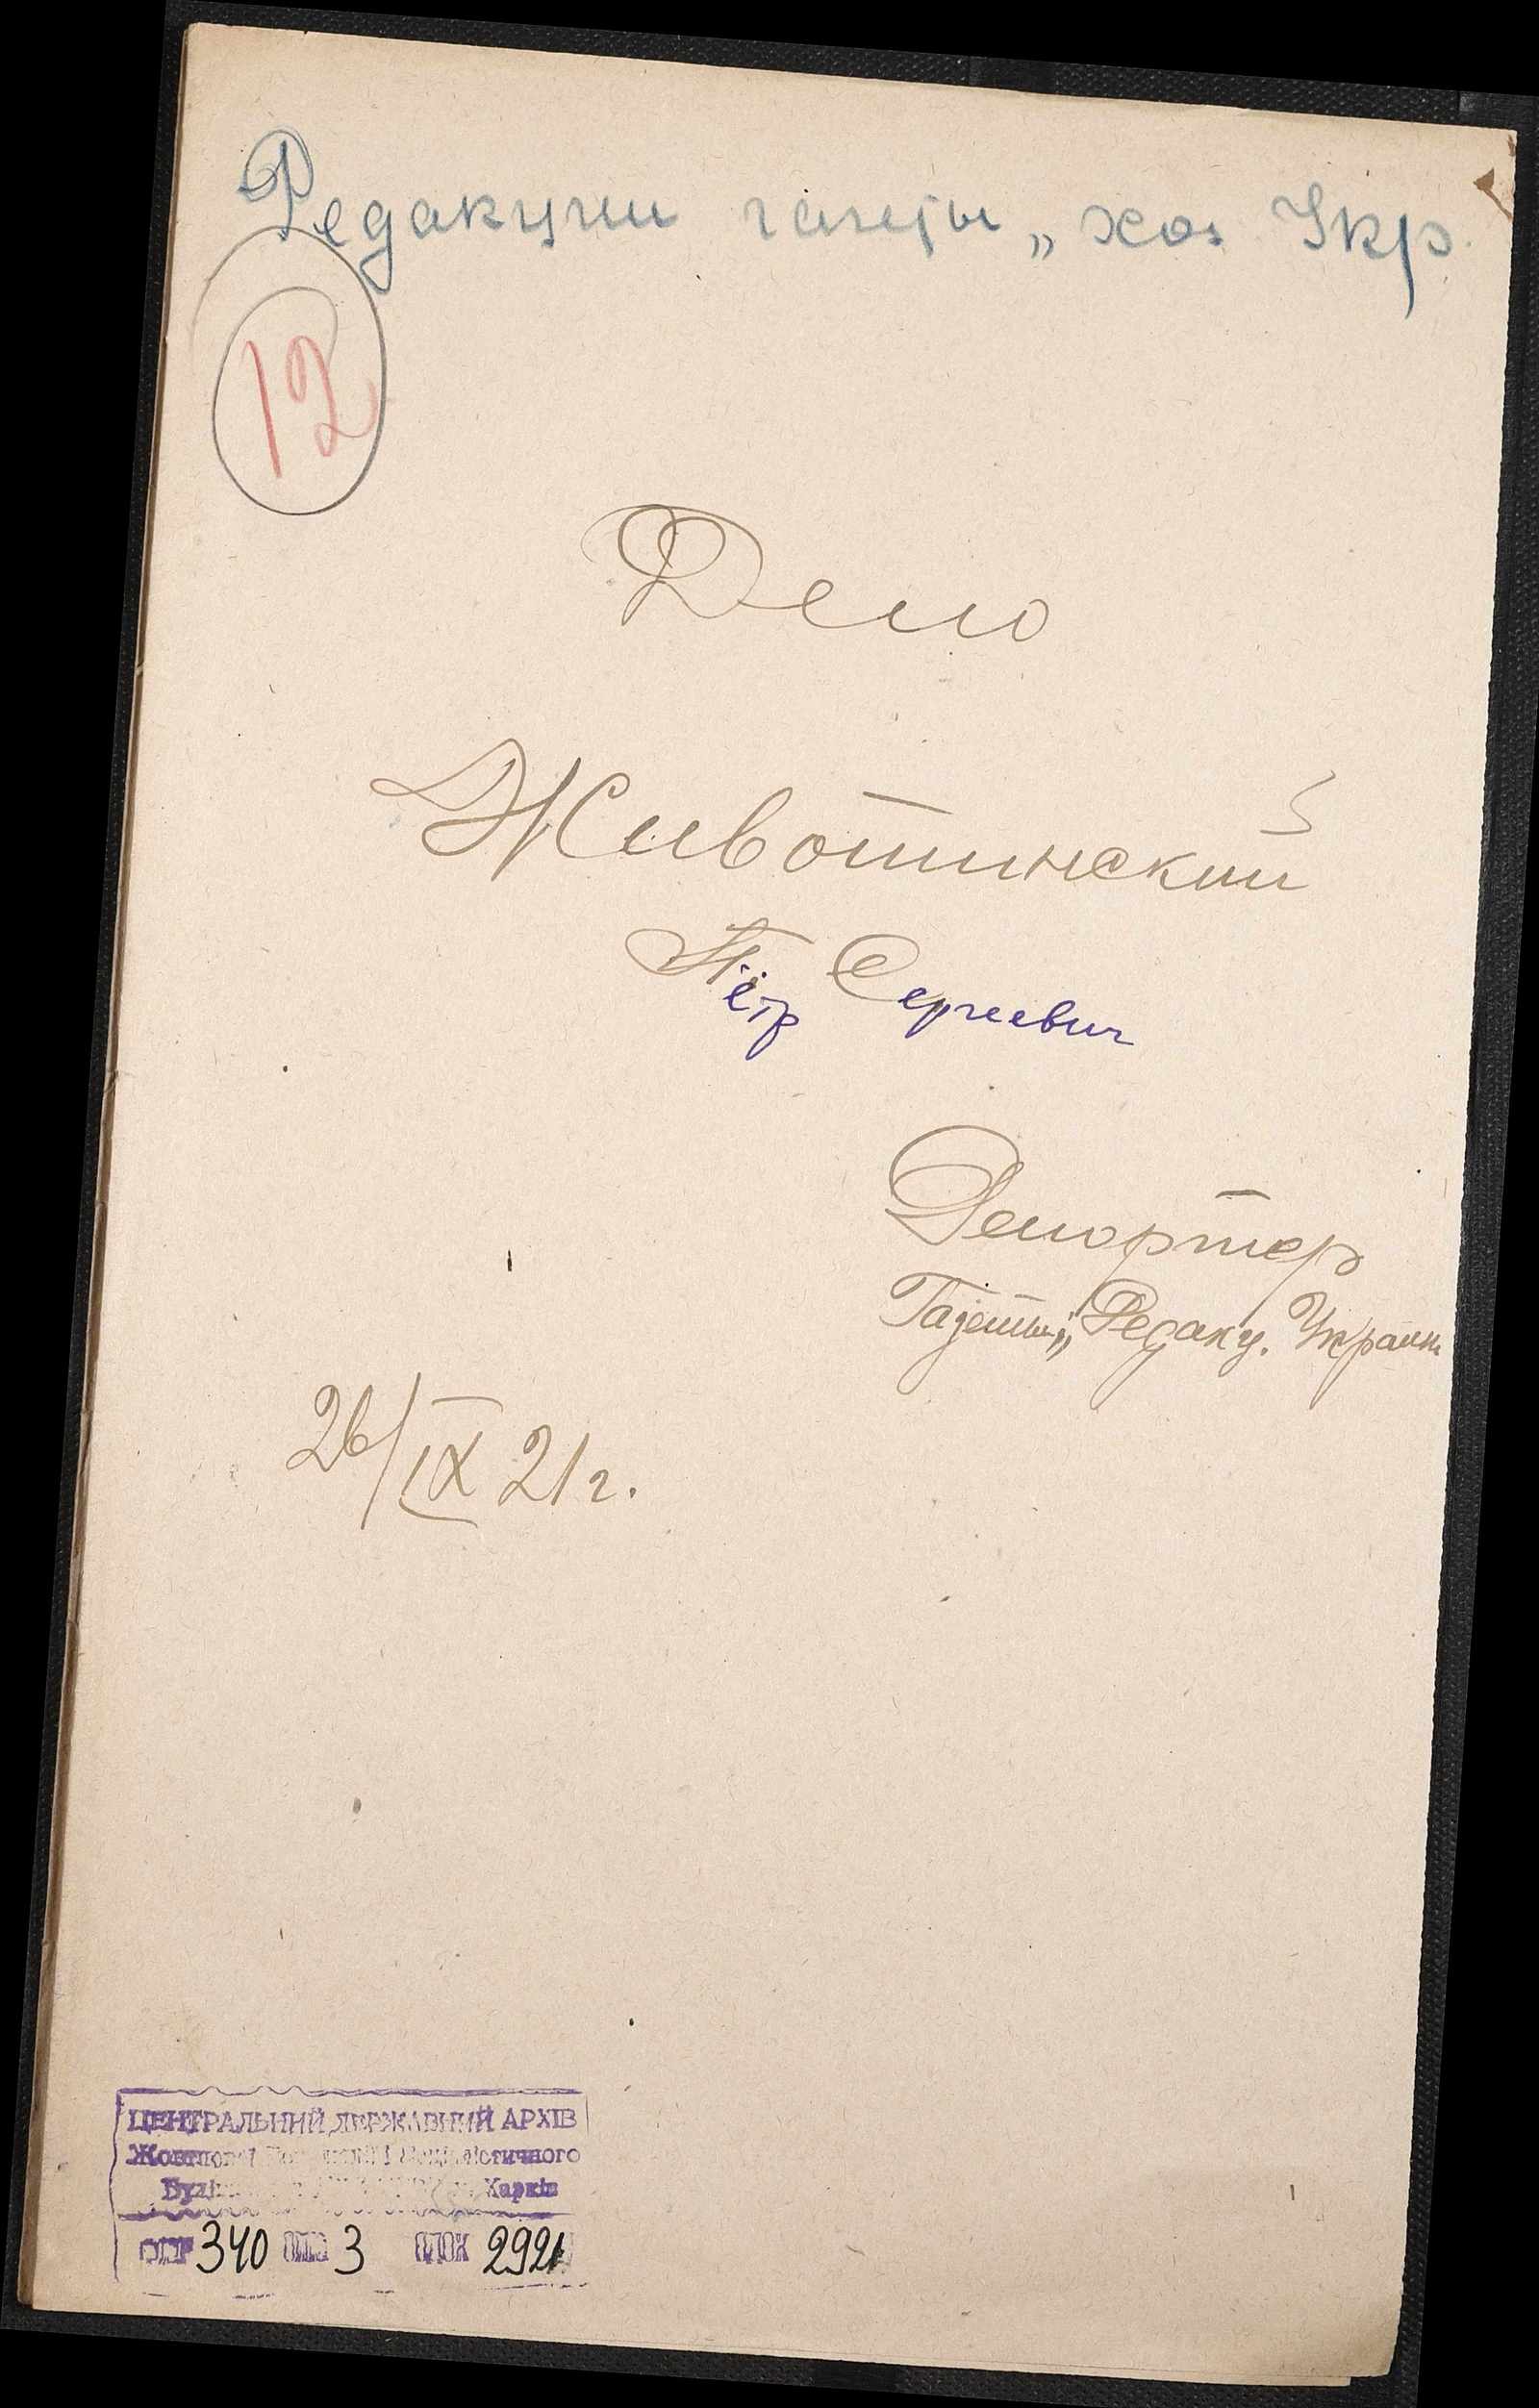 Редакции газеты „хоз Укр.
12
Дело
Животинский
Пётр Сергеевич
Репортер
Газеты „Редакц. Украин
26/IX 21 г.
ЦЕНТРАЛЬНИЙ ДЕРЖАВНИЙ АРХІВ
Жовтневої Революції і Соціалістичного
Харків
340 3 2921